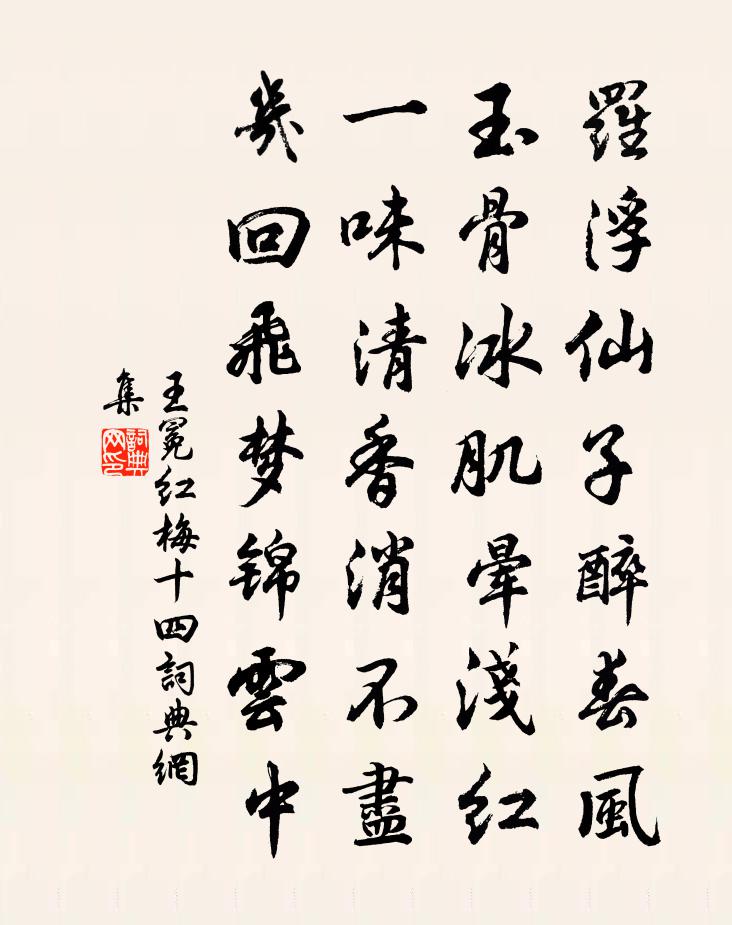 羅浮仙子醉春風
玉骨冰肌暈淺紅
一味清香消不盡
幾回飛梦锦雲中
王冕红梅十四詞典網
集
詞典网印